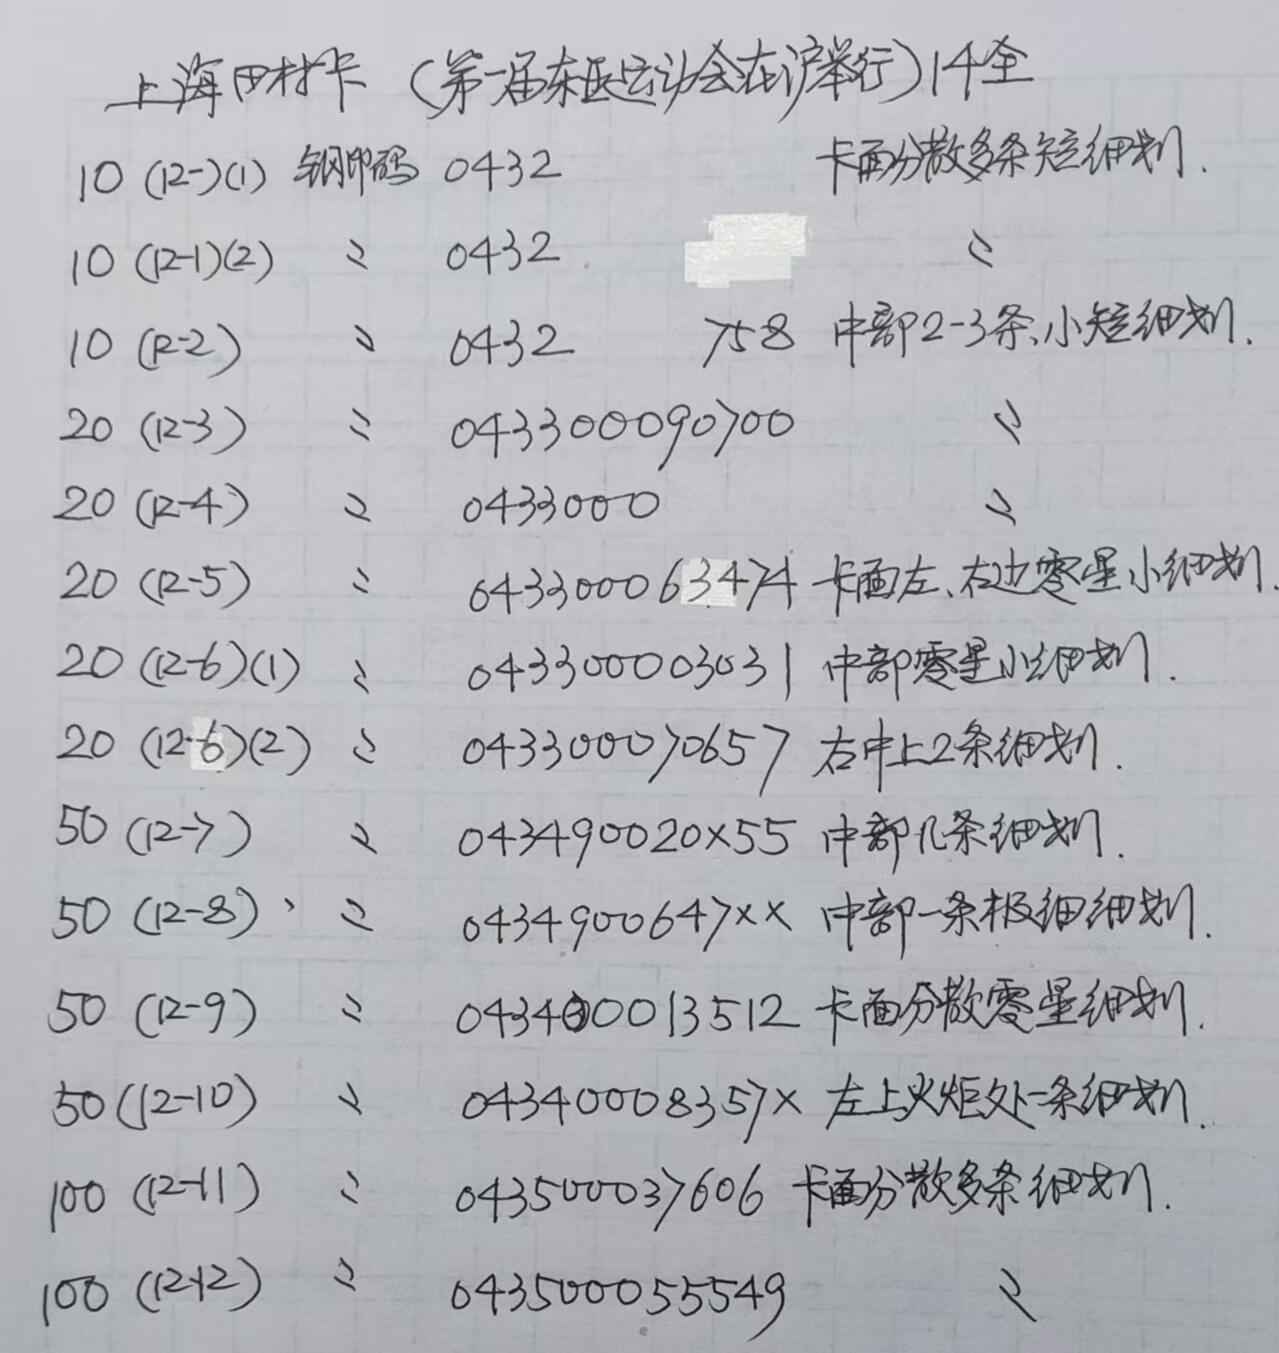 上海田村卡 (第一届东亚运动会在沪举行) 14全
10 (12-)(1) 钢印码 0432 卡面分散多条短细划.
10 (12-1)(2) 〃 0432 〃
10 (12-2) 〃 0432 758 中部2-3条、小短细划.
20 (12-3) 〃 043300090700 〃
20 (12-4) 〃 0433000 〃
20 (12-5) 〃 043300063474 卡面左、右边零星小细划.
20 (12-6)(1) 〃 043300003031 中部零星小细划.
20 (12-6)(2) 〃 043300070657 右中上2条细划.
50 (12-7) 〃 043490020×55 中部几条细划.
50 (12-8) 、 〃 0434900647×× 中部一条极细细划.
50 (12-9) 〃 043400013512 卡面分散零星细划.
50 (12-10) 〃 04340008357× 左上火炬处一条细划.
100 (12-11) 〃 043500037606 卡面分散多条细划.
100 (12-12) 〃 043500055549 〃